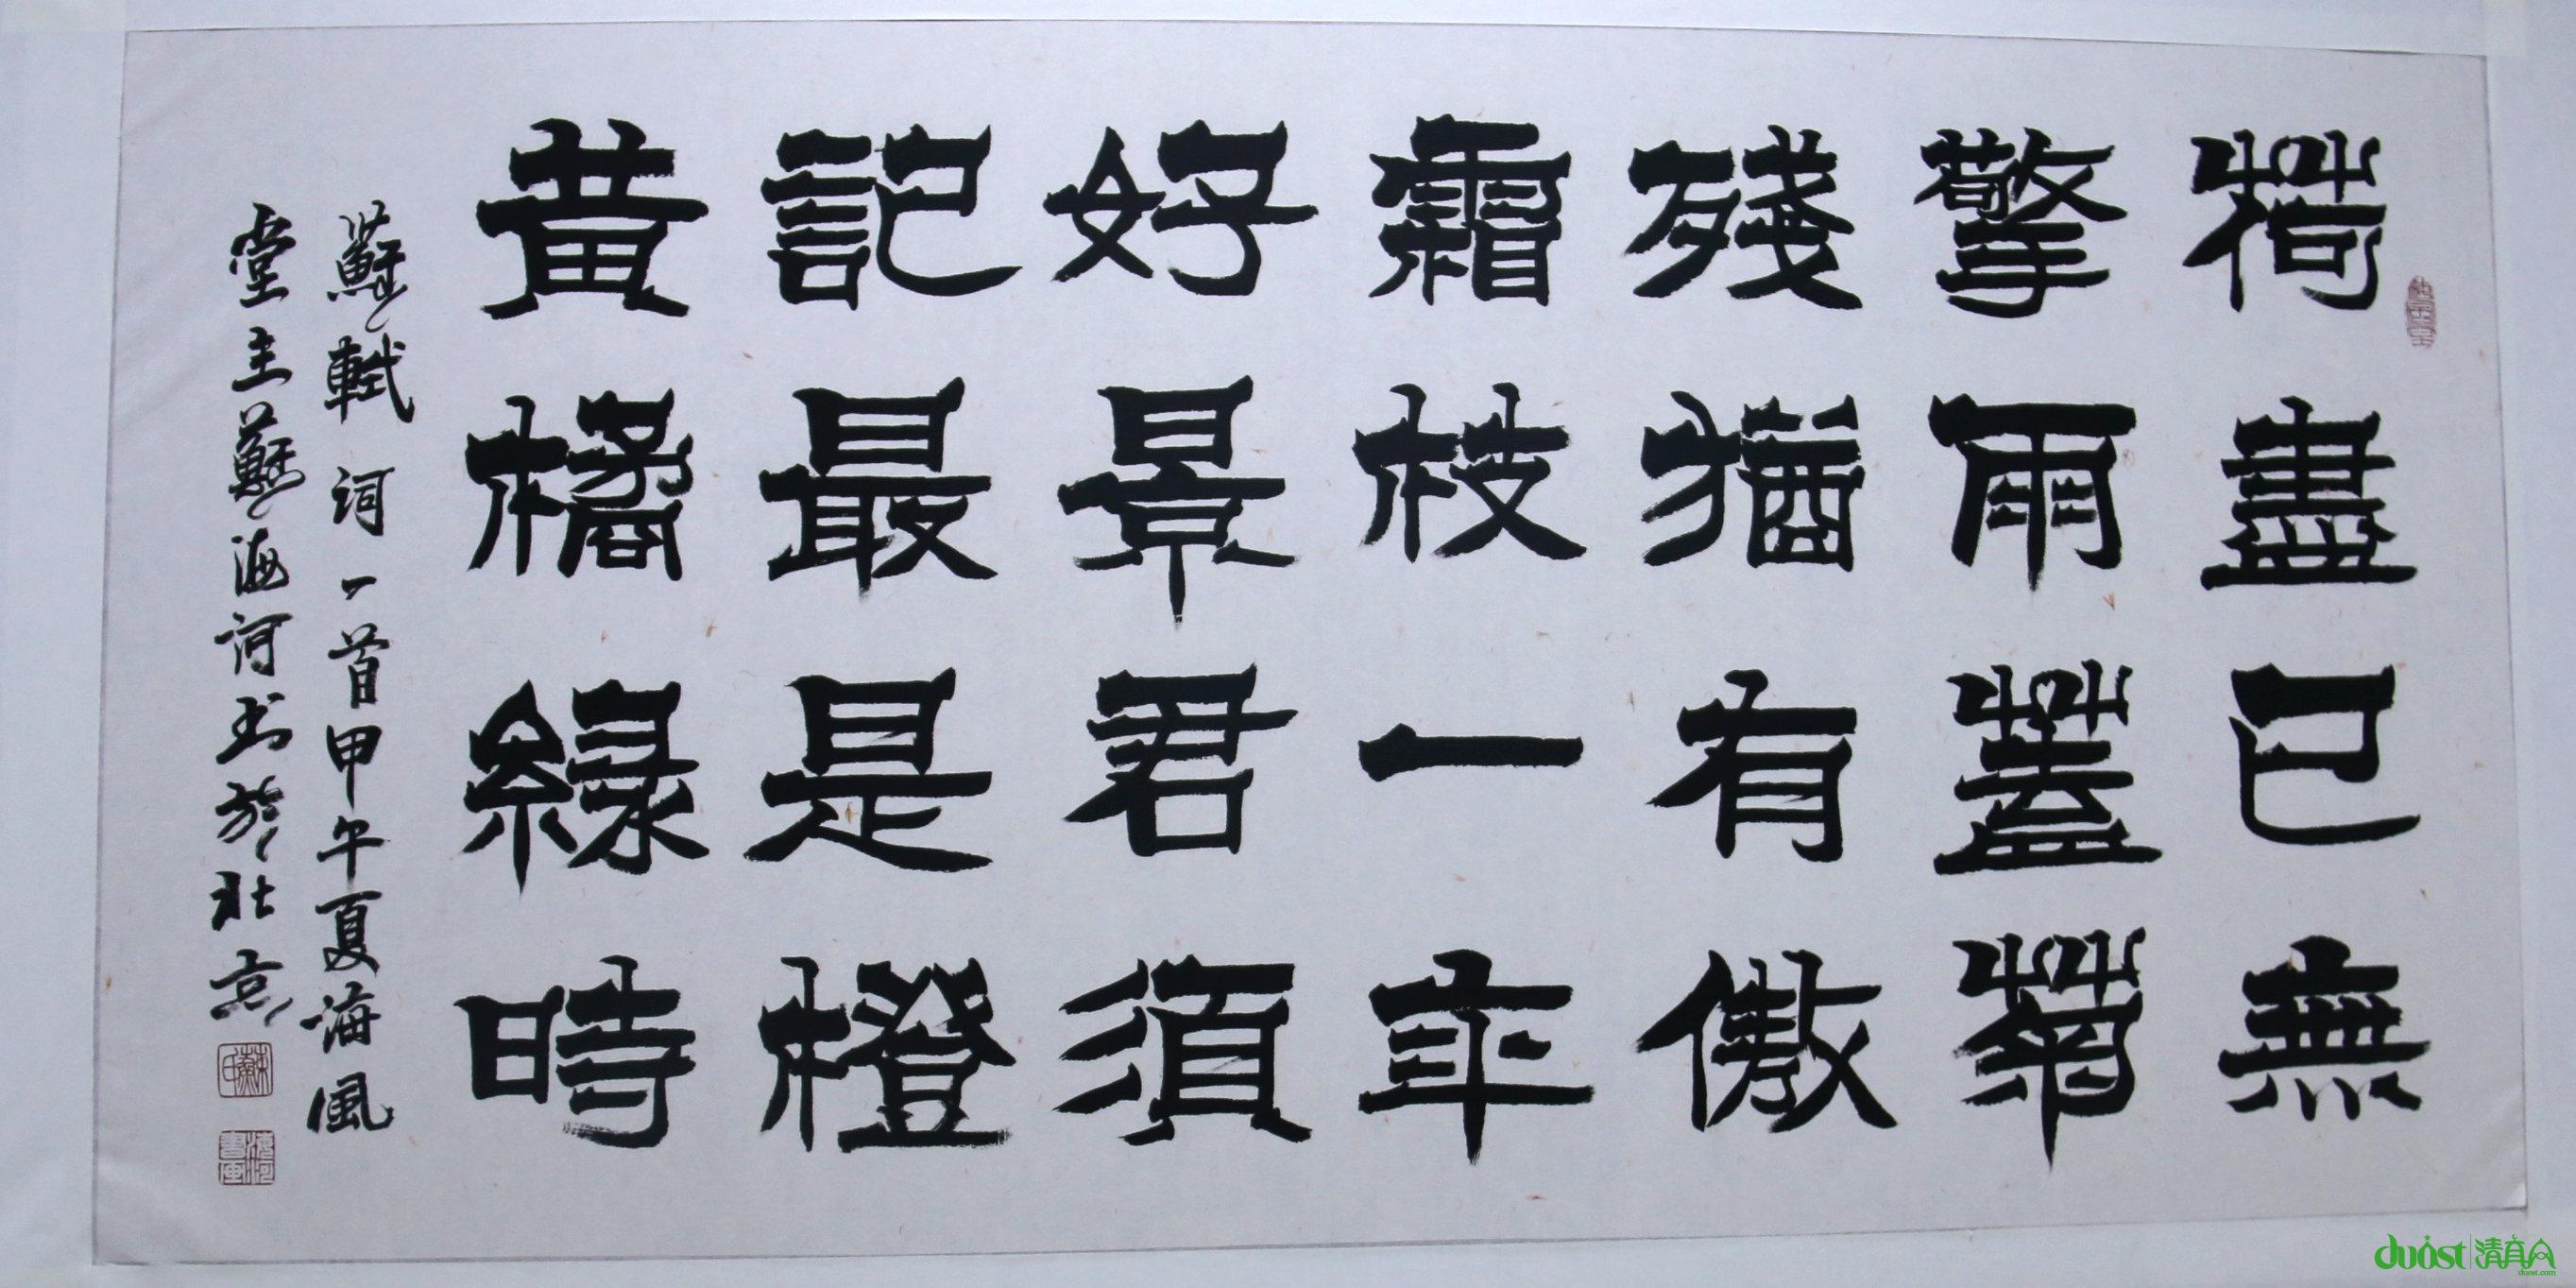 荷盡已無
擎雨蓋菊
殘猶有傲
霜枝一年
好景君須
記最是橙
黄橘緑時
蘇軾詞一首甲午夏海風
堂主蘇海河书於北京
duost
duost.com